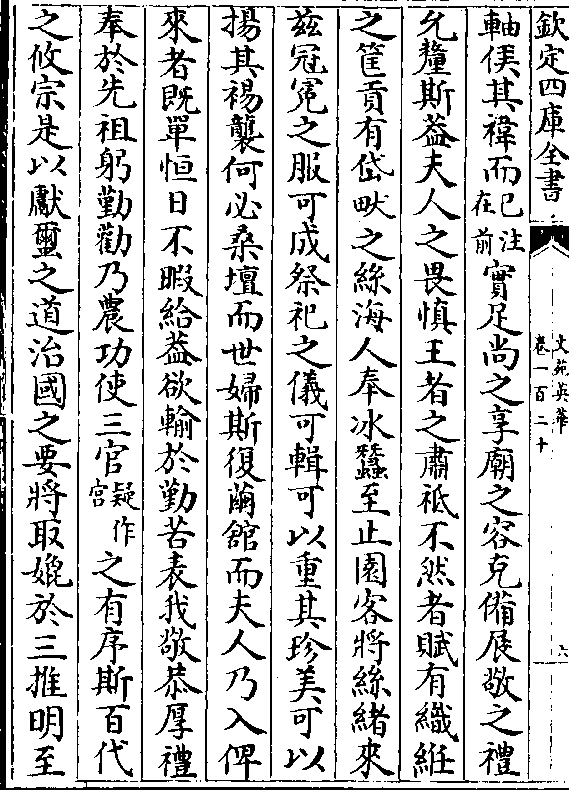 欽定四庫全書
文苑英華
卷一百二十
六
軸俟其褘而已注在前實足尚之享廟之容克備展敬之禮
允釐斯葢夫人之畏慎王者之肅祗不然者賦有織紝
之筐貢有岱畎之絲海人奉冰蠶至止園客將絲緒來
兹冠冕之服可成祭祀之儀可輯可以重其珍美可以
揚其裼襲何必桑壇而世婦斯復繭館而夫人乃入俾
來者既單恒日不暇給葢欲輸於勤苦表我敬恭厚禮
奉於先祖躬勤勸乃農功使三官疑作宫之有序斯百代
之攸宗是以獻璽之道治國之要將取媲於三推明至